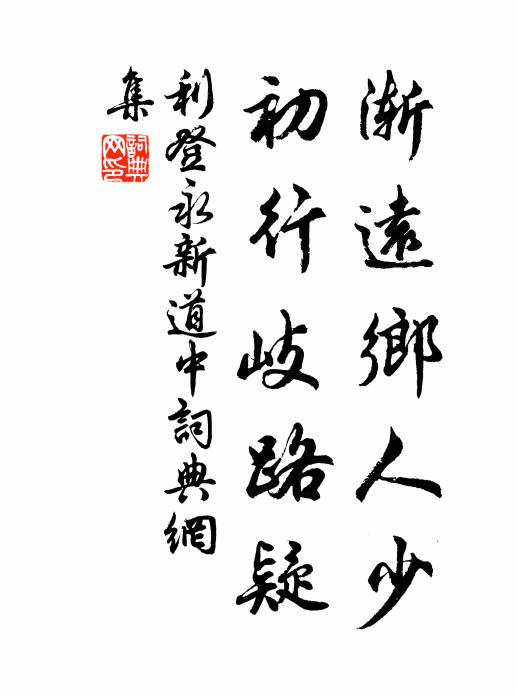 漸遠鄉人少
初行岐路疑
利登永新道中詞典網
集
詞典網印